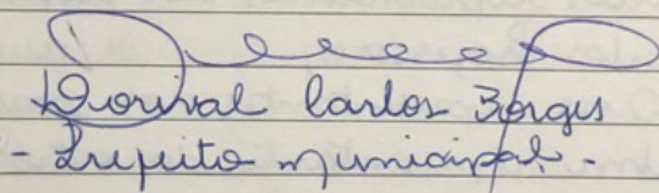 Dorival Carlos Borges
- Prefeito Municipal -